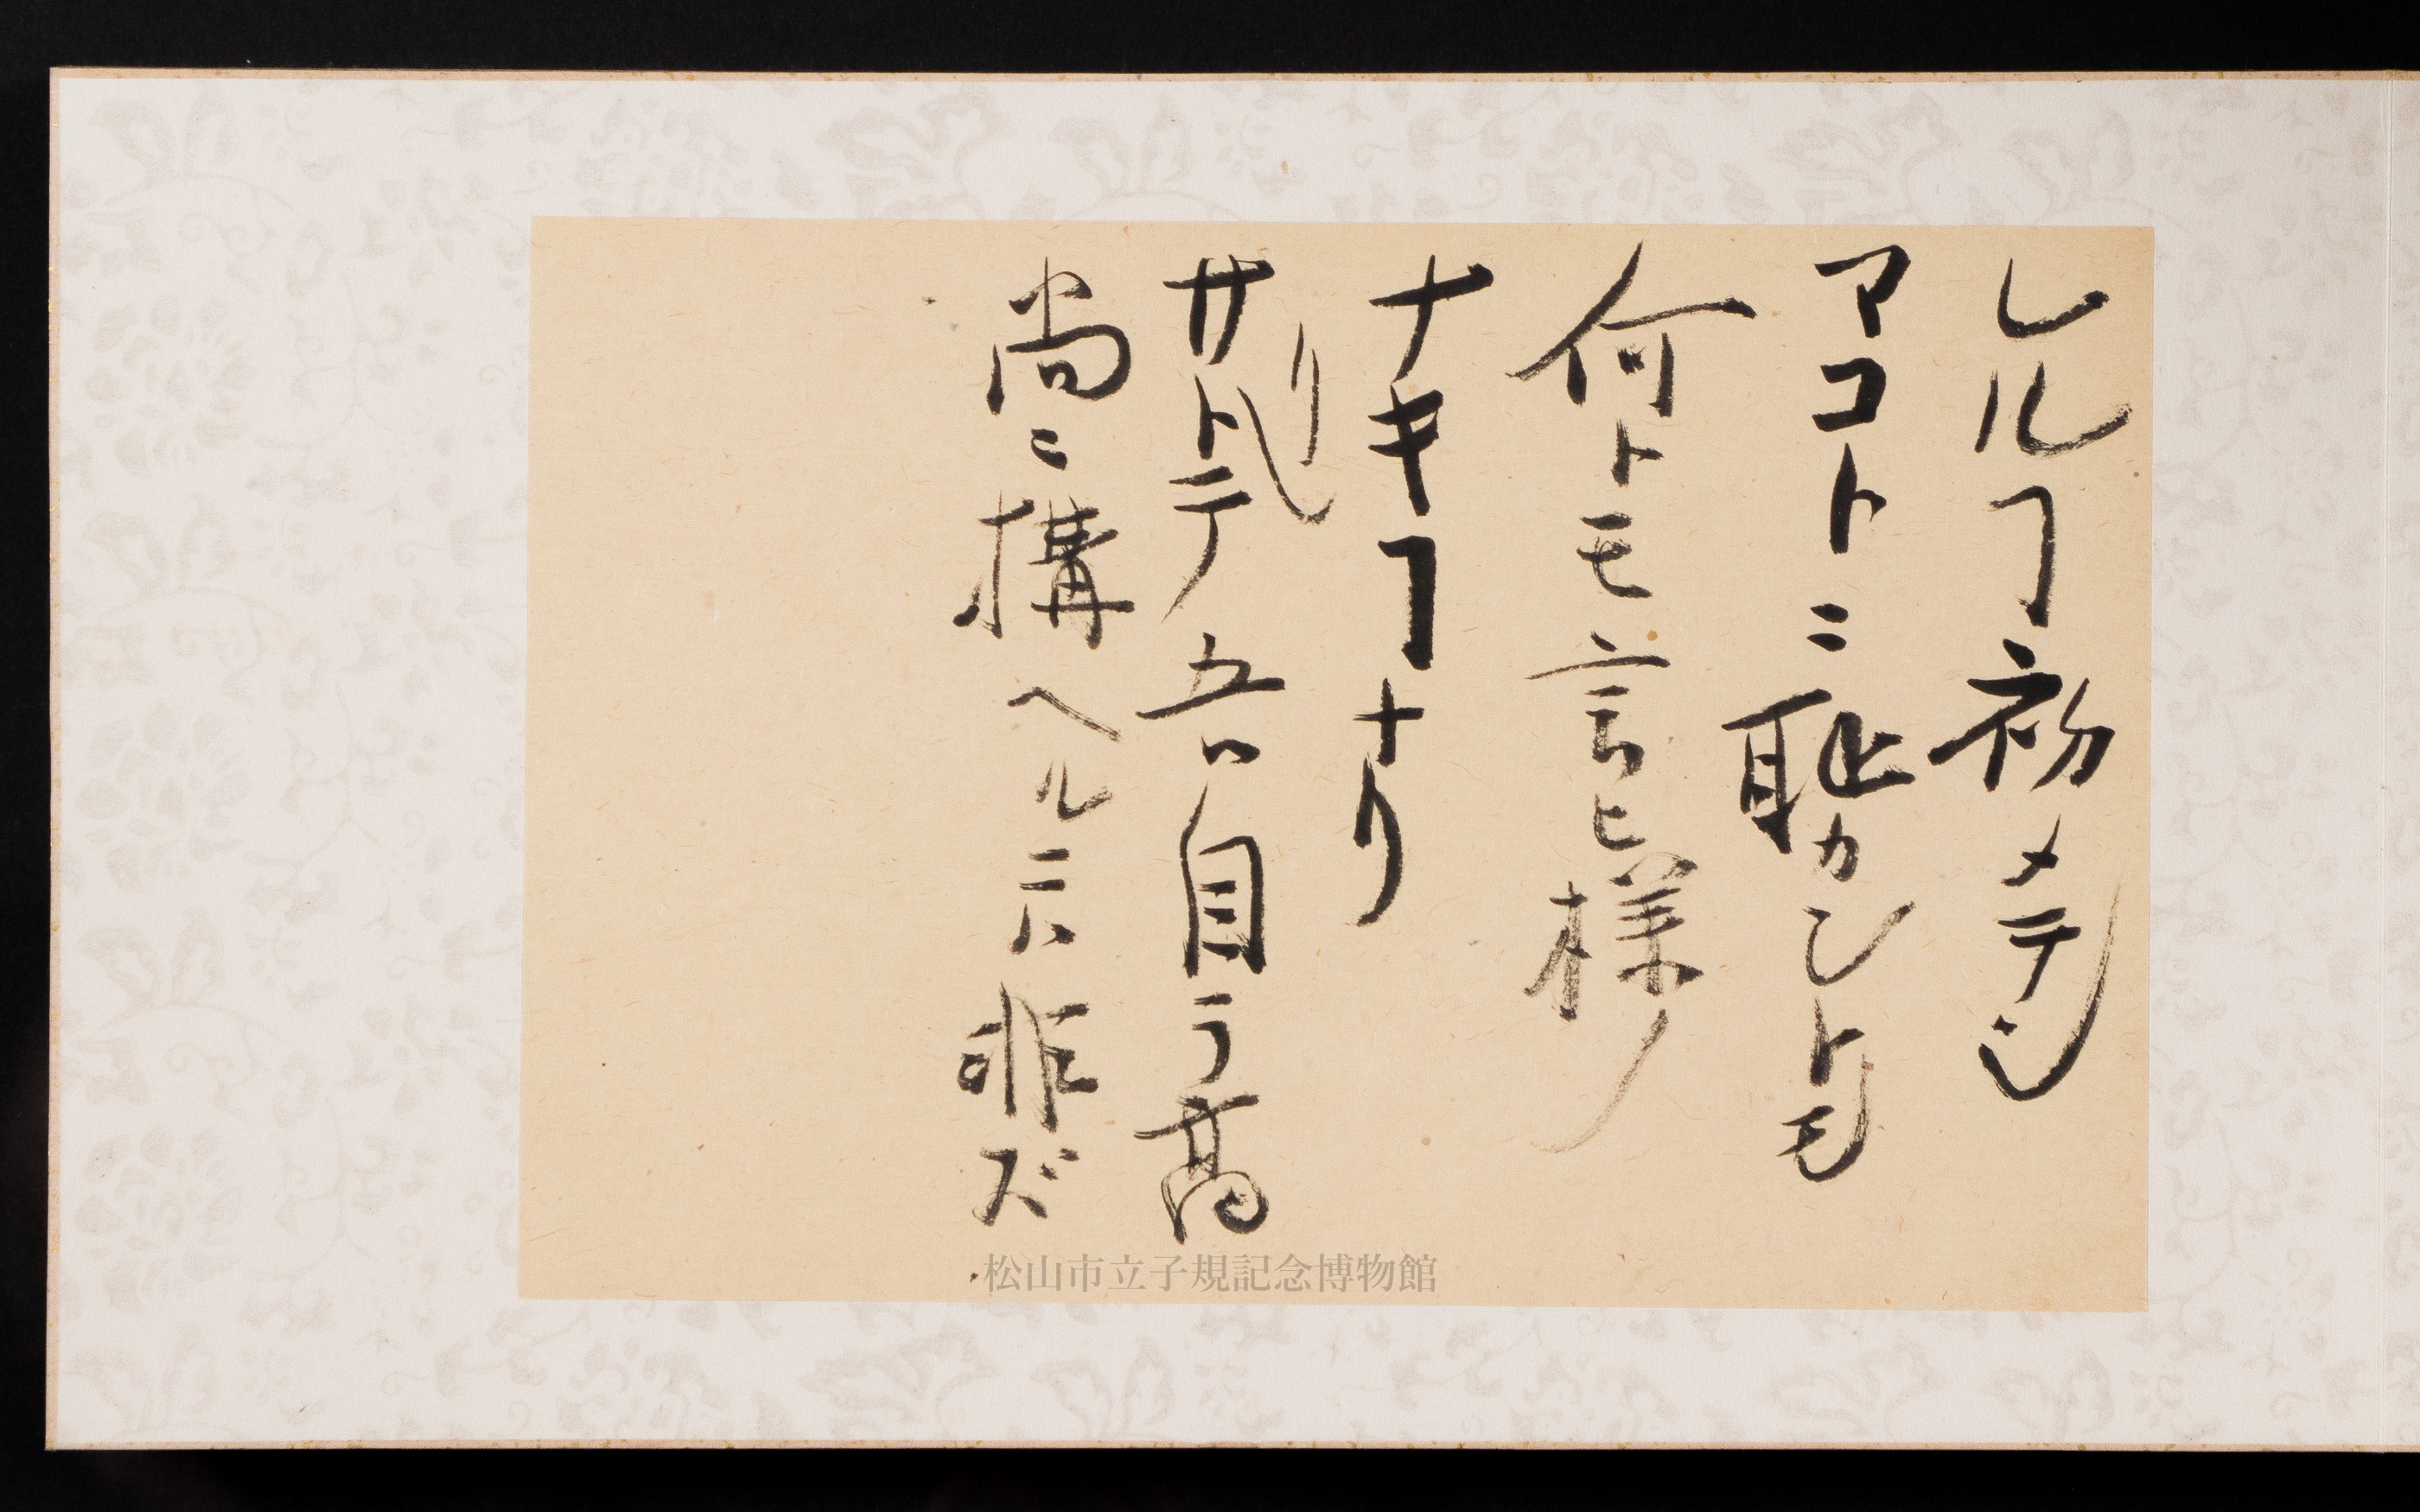 レルヿ初メテシ
マコトニ耻カシトモ
何トモ言ヒ様ノ
ナキヿナリ
サリトテ吾ハ自ラ高
尚ニ構ヘルニハ非ズ
松山市立子規記念博物館